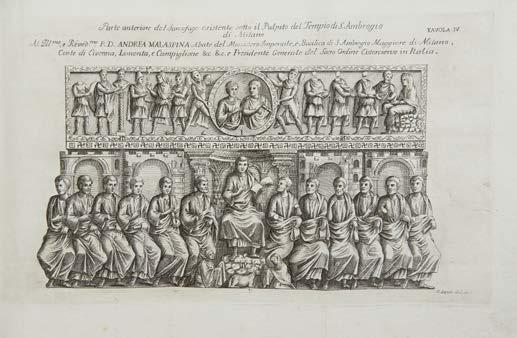 Parte anteriore del Sarcofago esistente sotto il Pulpito del Tempio di S. Ambrogio
di Milano
TAVOLA IV
Al Ill.mo, e Rev.mo P. D. ANDREA MALASPINA Abate del Monistero Imperiale, e Basilica di S. Ambrogio Maggiore di Milano,
Conte di Civenna, Limonta, e Campiglione &c. &c. e Presidente Generale del Sacro Ordine Cisterciense in Italia.